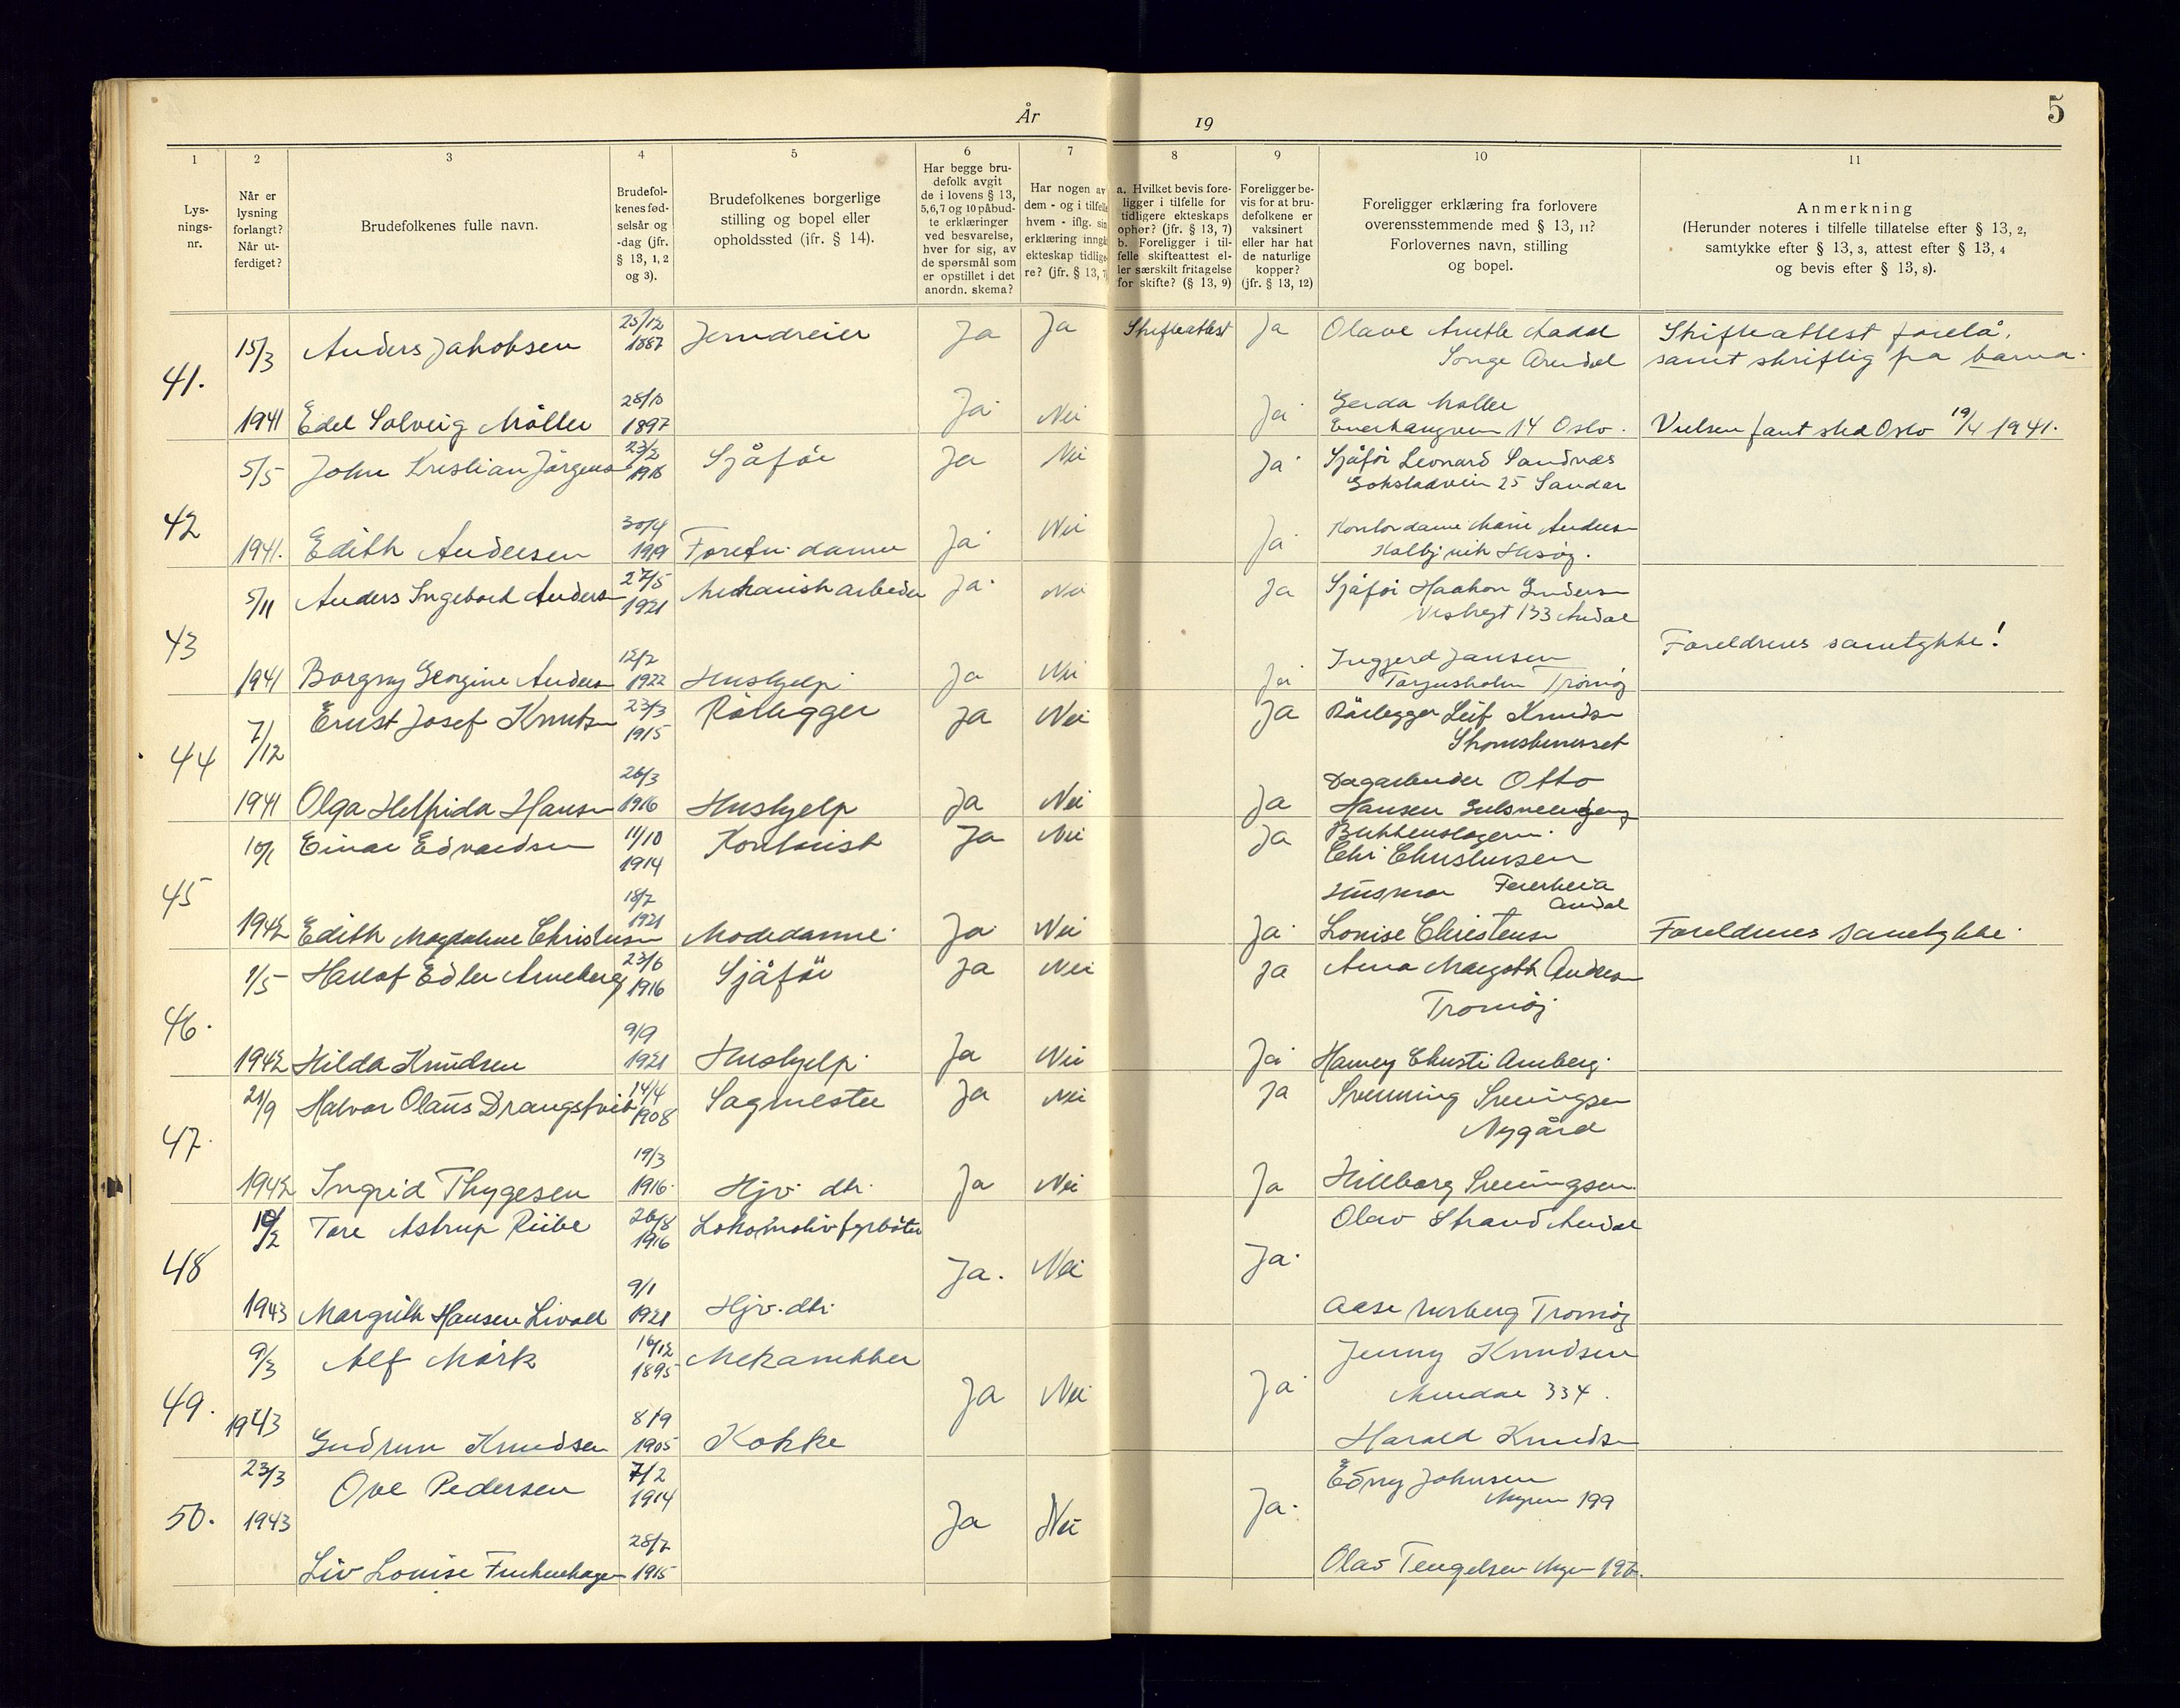 5
År
19
1
Lys-
nings-
nr.
2
Når er
lysning
forlangt?
Når ut-
ferdiget?
3
Brudefolkenes fulle navn.
4
Brudefol-
kenes fød-
selsår og
-dag (jfr.
§ 13, 1, 2
og 3).
5
Brudefolkenes borgerlige
stilling og bopel eller
opholdssted (jfr. § 14).
6
Har begge bru-
defolk avgit
de i lovens § 13,
5, 6, 7 og 10 påbud-
te erklæringer
ved besvarelse,
hver for sig, av
de spørsmål som
er opstillet i det
anordn. skema?
7
Har nogen av
dem - og i tilfelle
hvem - iflg. sin
erklæring inngå
ekteskap tidlige-
re? (jfr. § 13, 7
8
a. Hvilket bevis fore-
ligger i tilfelle for
tidligere ekteskaps
ophør? (jfr. § 13, 7)
b. Foreligger i til-
felle skifteattest el-
ler særskilt fritagelse
for skifte? (§ 13, 9)
9
Foreligger be-
vis for at bru-
defolkene er
vaksinert
eller har hat
de naturlige
kopper?
(jfr. § 13, 12)
10
Foreligger erklæring fra forlovere
overensstemmende med § 13, 11?
Forlovernes navn, stilling
og bopel.
11
Anmerkning
(Herunder noteres i tilfelle tillatelse efter § 13, 2,
samtykke efter § 13, 3, attest efter § 13, 4
og bevis efter § 13, 8).
41.
15/3
Anders Jakobsen
25/12
1887
Jerndreier
Ja
Ja
Skifteattest
Ja
Olave Anette Aadal
Songe Arendal
Skifteattest forelå,
samt skriftlig fra barna.
1941
Edel Solveig Møller
1897
Ja
Nei
Ja
Gerda Møller
14 Oslo.
Vielsen fant sted Oslo 19/4 1941.
42
5/5
John Kristian Jørgens
23/2
1916
Sjåfør
Ja
Nei
Ja
Sjåfør Leonard Sandnæs
Gokstadveien 25 Sandar
1941.
Edith Andersen
30/4
1919
Foretn. dame
Ja
Nei
Ja
Kontordame Marie Anders
Kalvjnik Husøy.
43
5/11
Anders Ingebret Anders
27/5
1921
Mekanisk arbeider
Ja
Nei
Ja
Sjåfør Haakon Gunders
133 Arendal
Foreldrenes samtykke!
1941
Borgny Georgine Anders
12/2
1922
Hushjelp
Ja
Nei
Ja
Ingjerd Jansen
Torjusholm Tromøy
44
7/12
Ernst Josef Knuts
23/3
1915
Rørlegger
Ja
Nei
Ja
Rørlegger Leif Knuds
1941
Olga Helfrida Hansen
26/3
1916
Hushjelp
Ja
Nei
Ja
Dagarbeider Otto
Hansen
45
10/1
Einar Edvardsen
11/10
1914
Kontorist
Ja
Nei
Ja
Chr Christensen
1942
Edith Magdalene Christensen
18/7
1921
Modedame
Ja
Nei
Ja
Husmor Feierheia
Arendal
Louise Christens
Foreldrenes samtykke.
46.
1/5
Herlof Edler Arneberg
23/6
1916
Sjåfør
Ja
Nei
Ja
Anna Margoth Anders
Tromøy
1942
Hilda Knudsen
9/9
1921
Hushjelp
Ja
Nei
Ja
47.
21/9
Halvor Olaus Drangsfeit
14/4
1908
Sagmester
Ja
Nei
Ja
Svenning Sveningsen
Nygård
1942
Ingrid Thygesen
19/3
1916.
Hjv. dtr.
Ja
Nei
Ja
Hillborg Sveningsen
48
Tore Astrup Riibe
26/8
1916
Lokomotivfyrbøter
Ja.
Nei
Ja.
Olav Strand Arendal
1943
Margith Hansen Livold
9/1
1921
Hjv. dtr.
Aase Norberg Tromøy
49.
9/3
Alf Mørk
16/12
1895
Mekanikker
Ja
Nei
Ja
Jenny Knudsen
334.
1943
Gudrun Knudsen
8/9
1905
Kokke
Harald Knuds
50.
23/3
Ove Pedersen
7/2
1914
Ja
Nei
Ja.
Edny Johnsen
Myren 199
1943
Liv Louise Finkenhagen
28/7
1915
Olav Tengelsen Myren